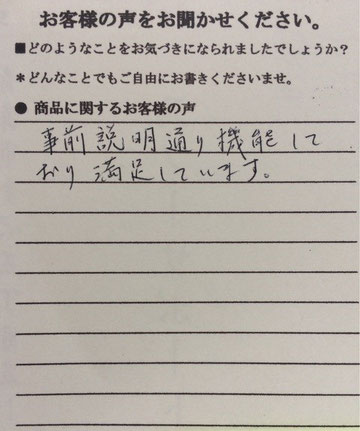 お客様の声をお聞かせください。
■どのようなことをお気づきになられましたでしょうか？
＊どんなことでもご自由にお書きくださいませ。
● 商品に関するお客様の声
事前説明通り機能して
おり満足しています。